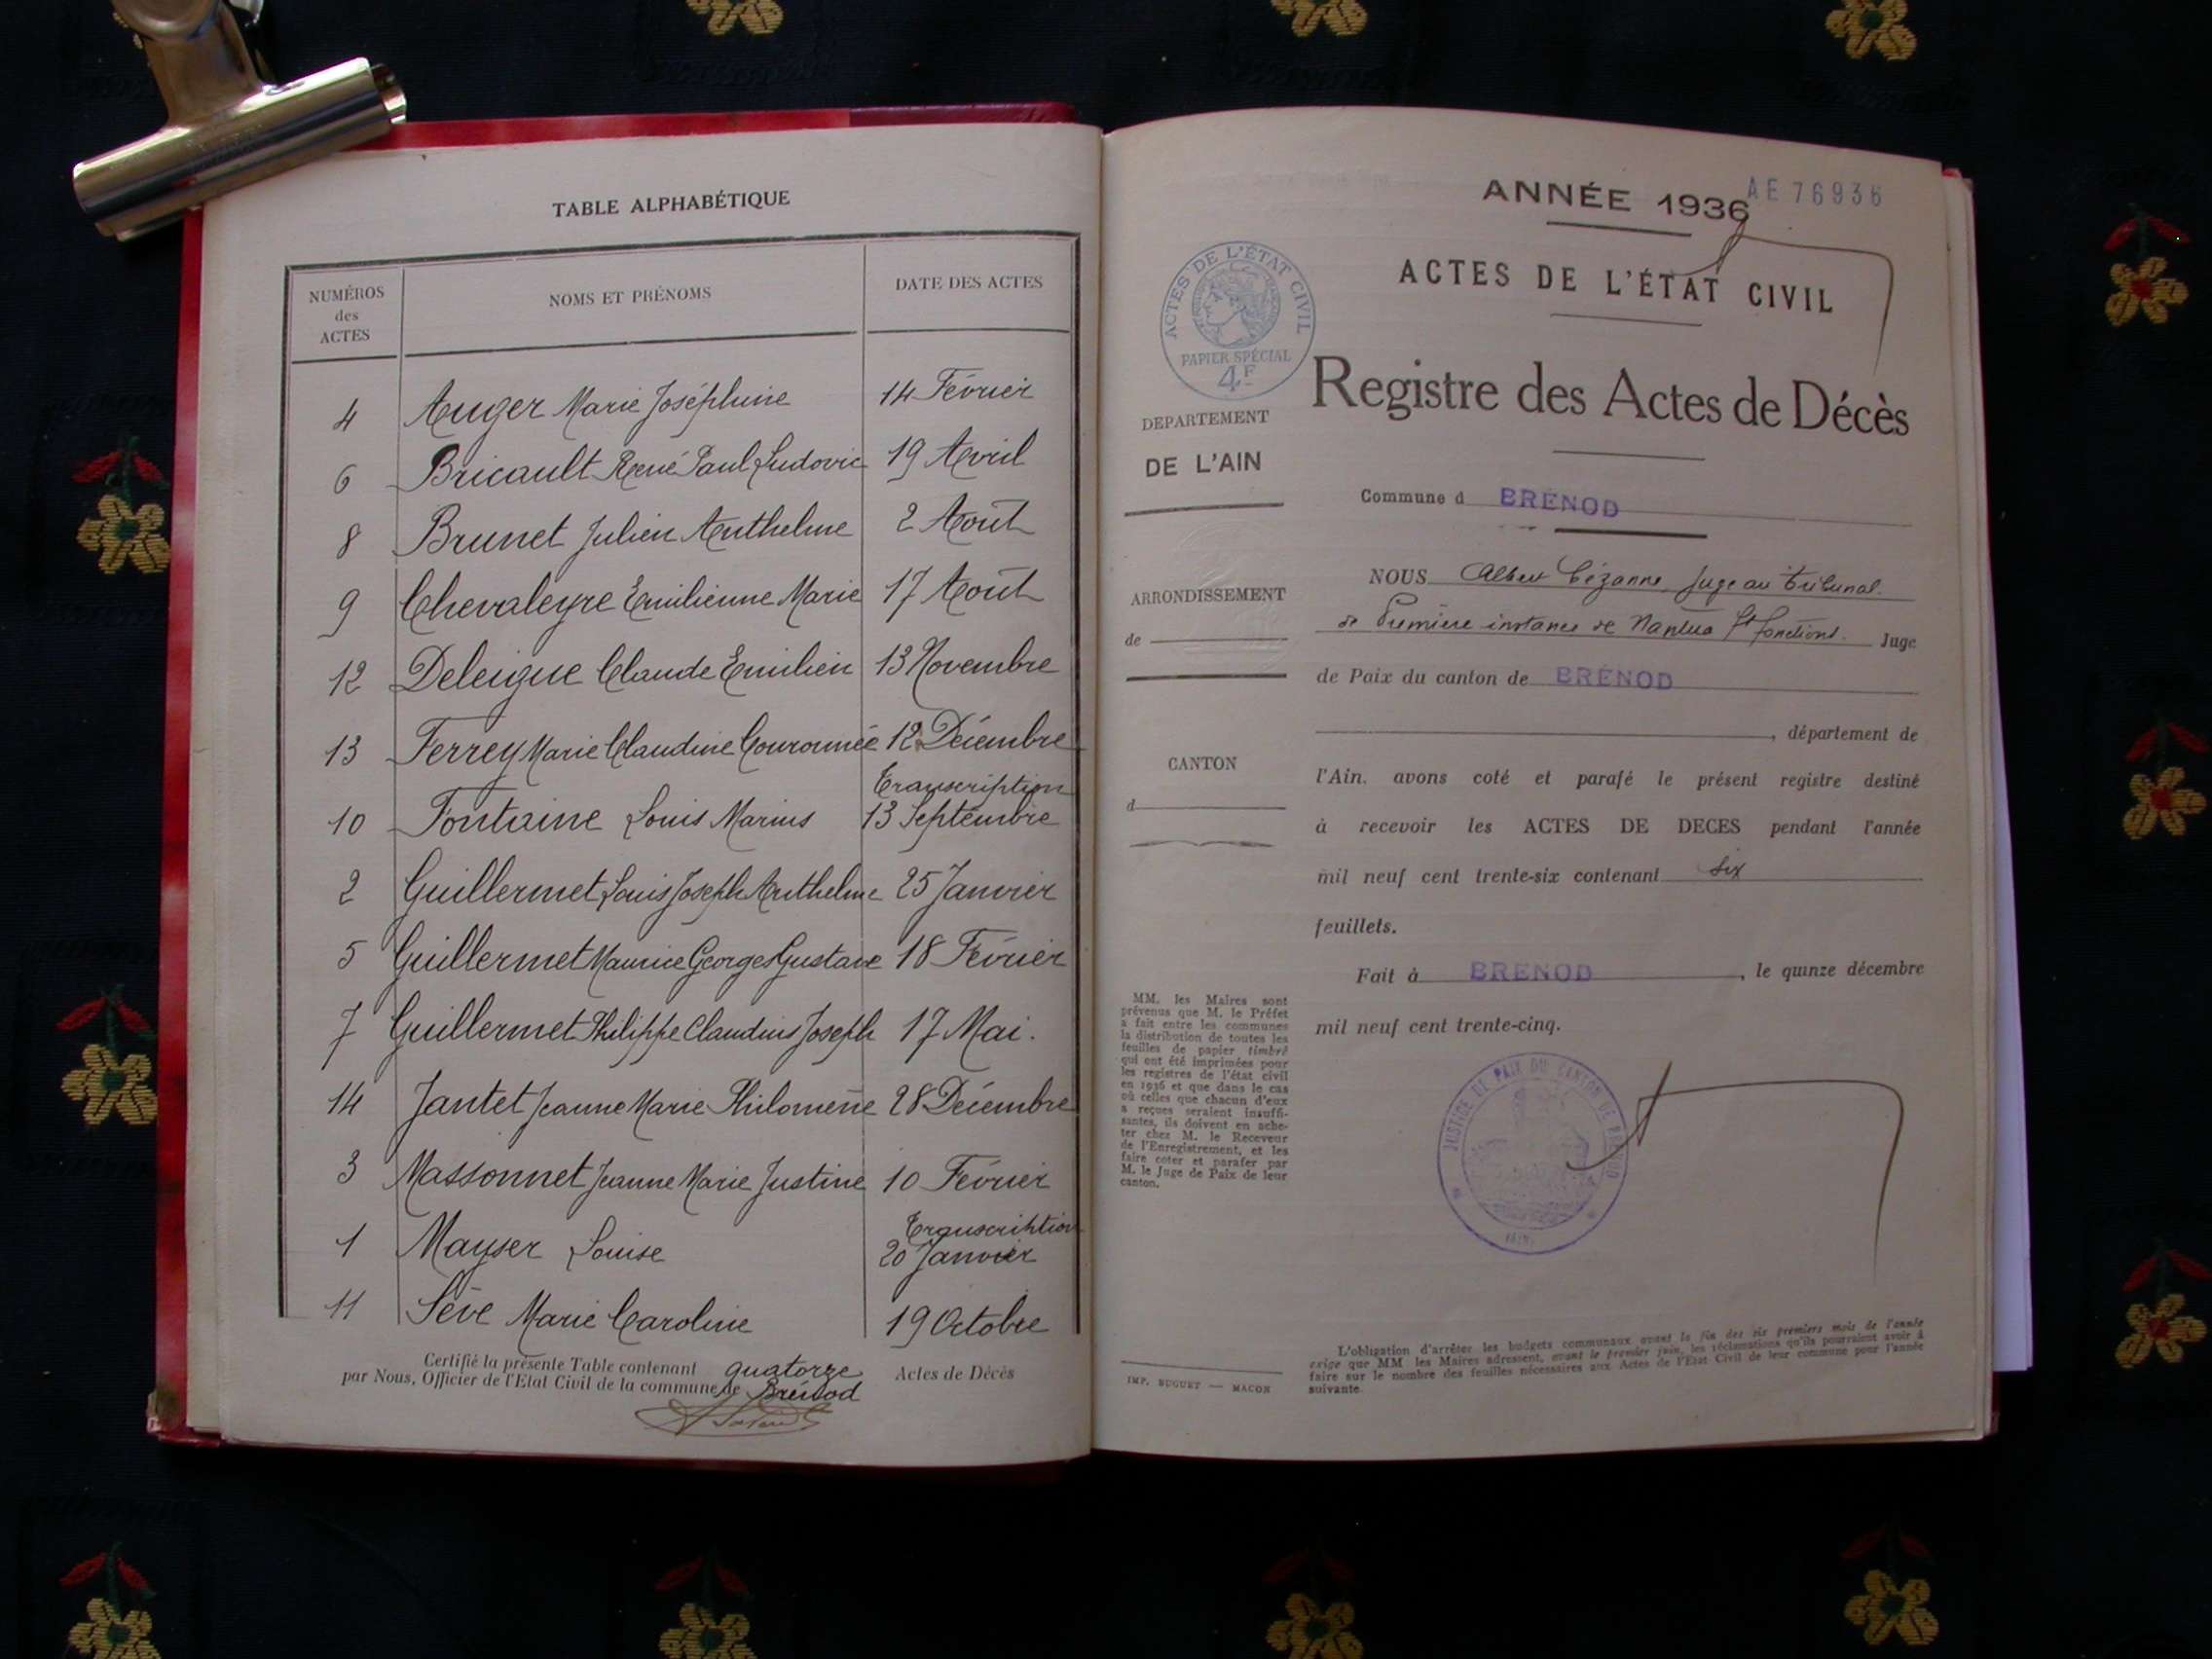 TABLE ALPHABÉTIQUE
NUMÉROS
des
ACTES
NOMS ET PRÉNOMS
DATE DES ACTES
4 Auger Marie Joséphine 14 Février
6 Bricault René Paul Ludovic 19 Avril
8 Brunet Julien Anthelme 2 Août
9 Chevaleyre Emilienne Marie 17 Août
12 Deleigue Claude Emilien 13 Novembre
13 Ferrey Marie Claudine Couronnée 12 Décembre
Transcription
10 Fontaine Louis Marius 13 Septembre
2 Guillermet Louis Joseph Anthelme 25 Janvier
5 Guillermet Maurice Georges Gustave 18 Février
7 Guillermet Philippe Claudius Joseph 17 Mai.
14 Jantet Jeanne Marie Philomène 28 Décembre
3 Massonnet Jeanne Marie Justine 10 Février
Transcription
1 Mayser Louise 20 Janvier
11 Sève Marie Caroline 19 Octobre
Certifié la présente Table contenant quatorze Actes de Décès
par Nous, Officier de l'Etat Civil de la commune de Brénod
ANNÉE 1936
AE 76936
ACTES DE L'ÉTAT CIVIL
ACTES DE L'ÉTAT CIVIL
PAPIER SPÉCIAL
4F
Registre des Actes de Décès
DÉPARTEMENT
DE L'AIN
Commune d BRÉNOD
ARRONDISSEMENT
de
CANTON
d
NOUS Albert Cézanne, Juge au tribunal
de Première instance de Nantua ft fonctions. Juge
de Paix du canton de BRÉNOD
, département de
l'Ain, avons coté et parafé le présent registre destiné
à recevoir les ACTES DE DECES pendant l'année
mil neuf cent trente-six contenant six
feuillets.
Fait à BRENOD, le quinze décembre
mil neuf cent trente-cinq.
JUSTICE DE PAIX DU CANTON DE BRENOD
MM. les Maires sont
prévenus que M. le Préfet
a fait entre les communes
la distribution de toutes les
feuilles de papier timbré
qui ont été imprimées pour
les registres de l'état civil
en 1936 et que dans le cas
où celles que chacun d'eux
a reçues seraient insuffi-
santes, ils doivent en ache-
ter chez M. le Receveur
de l'Enregistrement, et les
faire coter et parafer par
M. le Juge de Paix de leur
canton.
IMP. BUGUET — MACON
L'obligation d'arrêter les budgets communaux avant la fin des six premiers mois de l'année
exige que MM les Maires adressent, avant le premier juin, les réclamations qu'ils pourraient avoir à
faire sur le nombre des feuilles nécessaires aux Actes de l'Etat Civil de leur commune pour l'année
suivante.